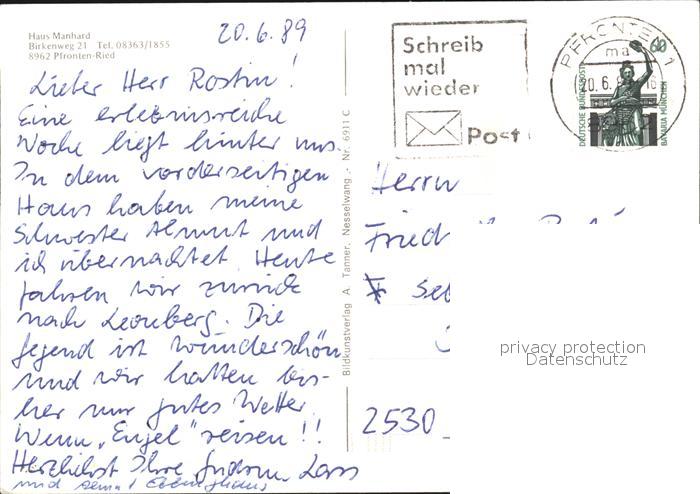 Haus Manhard
Birkenweg 21 Tel. 08363/1855
8962 Pfronten-Ried
20.6.89
Lieber Herr Rostin!
Eine erlebnisreiche
Woche liegt hinter uns.
In dem vorderseitigen
Haus haben meine
Schwester Almut und
ich übernachtet. Heute
fahren wir zurück
nach Leonberg. Die
Gegend ist wunderschön
und wir hatten bis-
her nur gutes Wetter.
Wenn „Engel" reisen!!
Herzlichst Ihre Gudrun
und
Bildkunstverlag A. Tanner, Nesselwang - Nr. 6911 C
Schreib
mal
wieder
Post
PFRONTEN 1
20.6.8
60
DEUTSCHE BUNDESPOST
BAVARIA MÜNCHEN
Herrn
Fried
2530
privacy protection
Datenschutz